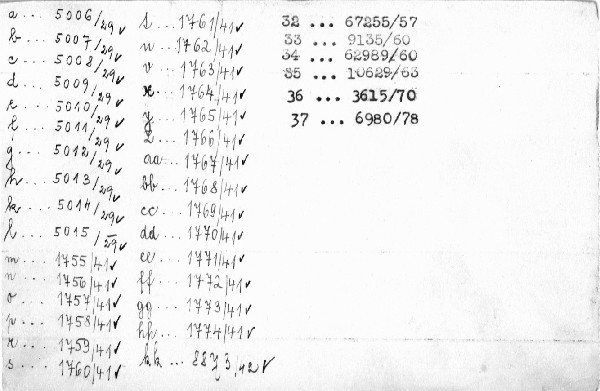 a... 5006/29 ✓
b... 5007/29 ✓
c... 5008/29 ✓
d... 5009/29 ✓
e... 5010/29 ✓
f... 5011/29 ✓
g... 5012/29 ✓
h... 5013/29 ✓
k... 5014/29 ✓
l... 5015/29 ✓
m... 1755/41 ✓
n... 1756/41 ✓
o... 1757/41 ✓
p... 1758/41 ✓
r... 1759/41 ✓
s... 1760/41 ✓
t... 1761/41 ✓
u... 1762/41 ✓
v... 1763/41 ✓
x... 1764/41 ✓
y... 1765/41 ✓
z... 1766/41 ✓
aa... 1767/41 ✓
bb... 1768/41 ✓
cc... 1769/41 ✓
dd... 1770/41 ✓
ee... 1771/41 ✓
ff... 1772/41 ✓
gg... 1773/41 ✓
hh... 1774/41 ✓
kk... 8873/42 ✓
32 ... 67255/57
33 ... 9135/60
34 ... 62989/60
35 ... 10629/63
36 ... 3615/70
37 ... 6980/78